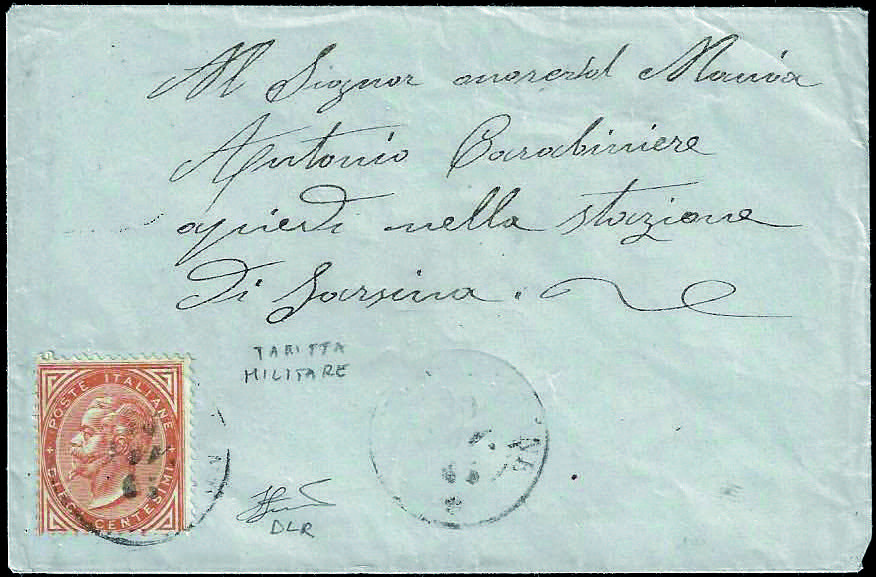 Al Signor Manôa
Antonio Carabiniere
apiedi nella stazione
Di Sarsina.
TARIFFA
MILITARE
POSTE ITALIANE
DIECI CENTESIMI
DLR